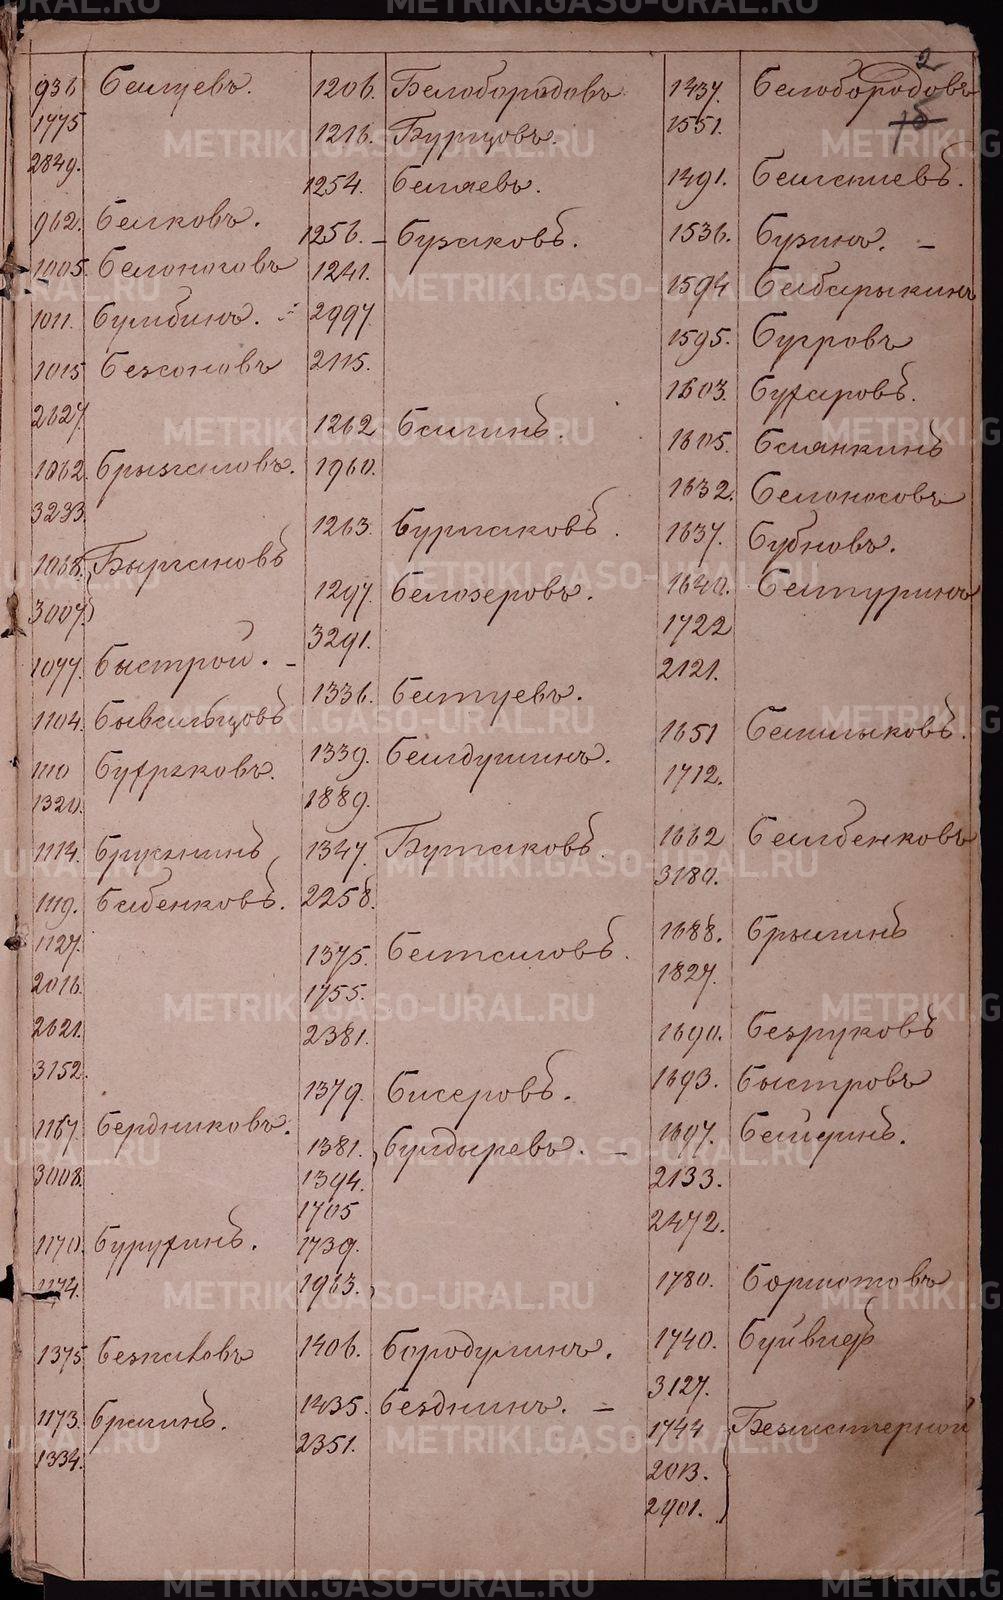 2
15
936 Балуевъ.
1775
2849.
962. Белковъ.
1005. Белоноговъ
1011. Бумбинъ.
1015 Безсоновъ
2627.
1062. Брызгаловъ.
3233.
1068. Быргановъ
3007
1077. Быстрой. –
1104. Бывальцовъ
1110 Бутряковъ.
1320.
1114. Брусянинъ
1119. Бабенковъ.
1127.
2016.
2621.
3152.
1167. Бердниковъ.
3008.
1170. Буругинъ.
1174.
1375
1173. Брагинъ.
1334.
1206. Белобородовъ
1216. Бурцовъ.
1254. Беляевъ.
1256. – Бузаковъ.
1241.
2997.
2115.
1262 Балинъ.
1960.
1263. Бурмаковъ.
1297. Белозеровъ.
3291.
1336. Батуевъ.
1339. Балдушинъ.
1889.
1347. Бутаковъ.
2258.
1375. Батаговъ.
1755.
2381.
1379. Бисеровъ.
1381. Булдыревъ. –
1394.
1705
1739.
1963.
1406. Бородулинъ.
1435. Безднинъ. –
2351.
1437. Белобородовъ
1551.
1491.
1536. Бузинъ. –
1594 Бабарыкинъ
1595. Бугровъ
1603. Бухаровъ.
1605. Балянкинъ
1632. Белоносовъ
1637. Бубновъ.
1640. Батуринъ
1722
2121.
1651 Башлыковъ.
1712.
1662 Балбенковъ
3180.
1688. Брылинъ
1827.
1690. Безруковъ
1693. Быстровъ
1697. Байдинъ.
2133.
2472.
1780. Бормотовъ
1740.
3127.
1744 Безматерной
2013.
2901.
METRIKI.GASO-URAL.RU